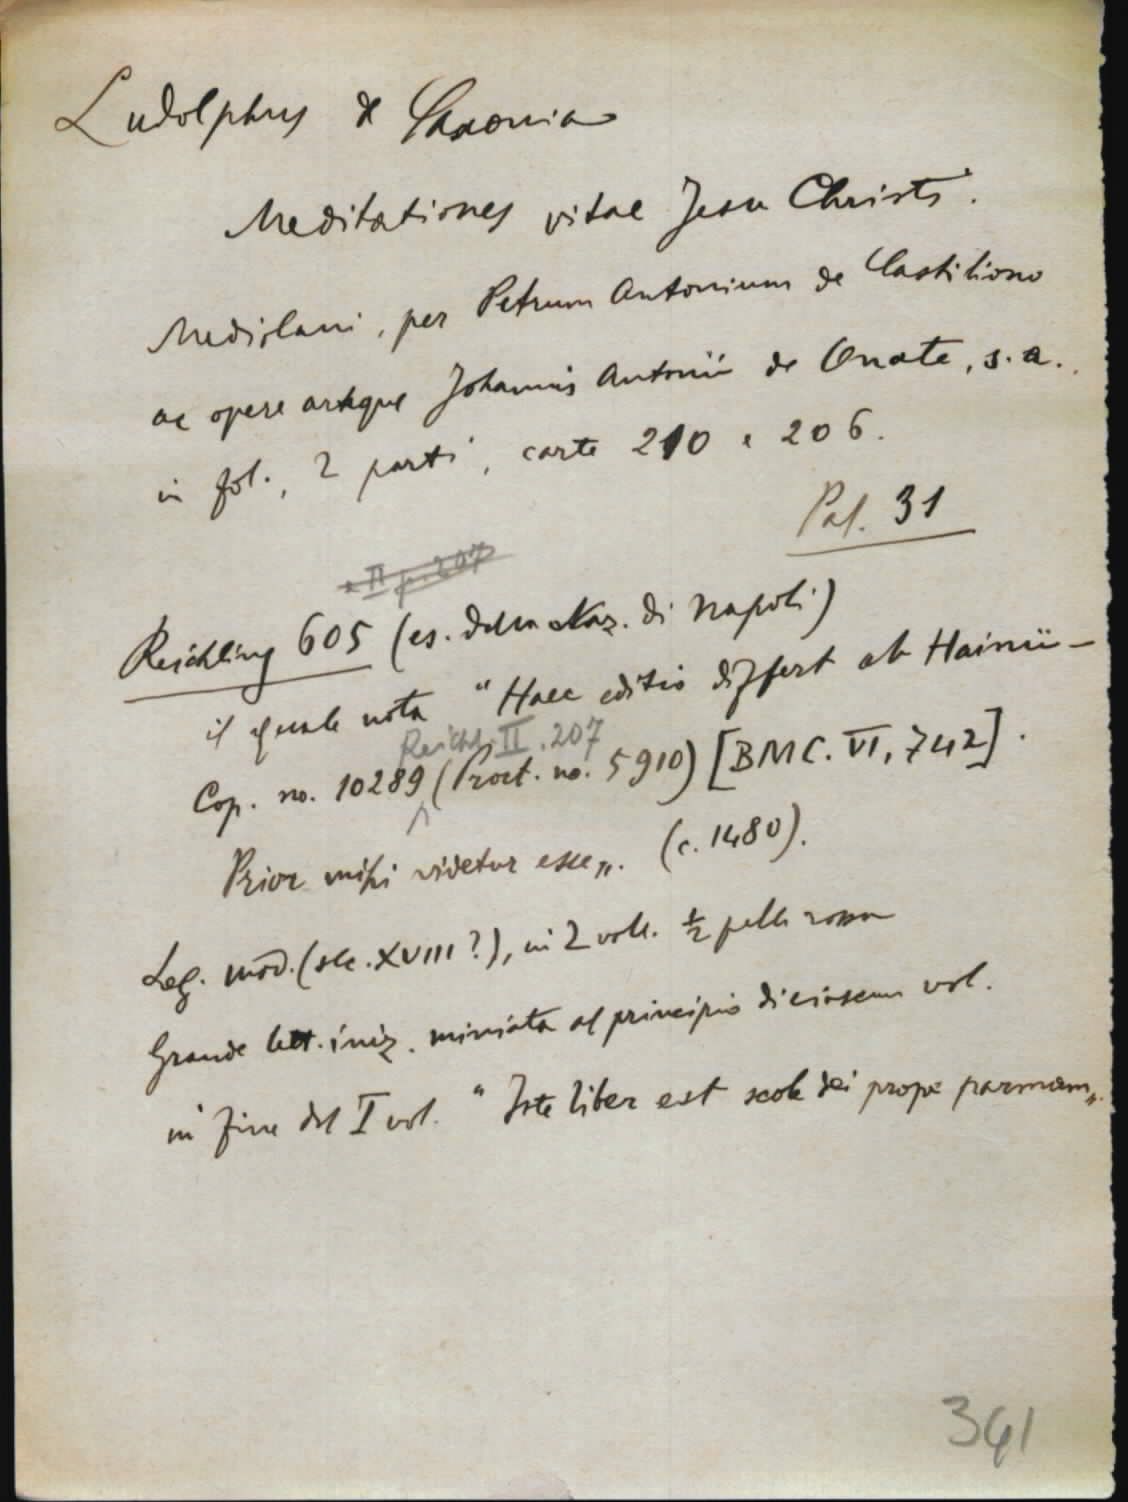 Ludolphus de Saxonia
Meditationes vitae Jesu Christi.
Mediolani, per Petrum Antonium de Castiliono
ac opere artique Johannis Antonii de Onate, s. a.
in fol., 2 parti, carte 210 e 206.
Pal. 31
e II p. 207
Reichling 605 (es. della Naz. di Napoli)
il quale nota "Haec editio differt ab Hainii-
Reichl. II. 207
Cop. no. 10289 (Proct. no. 5910) [BMC. VI, 742].
Prior mihi videtur esse„. (c. 1480).
Leg. mod. (sec. XVIII?), in 2 voll. ½ pelle rossa
Grande lett. iniz. miniata al principio di ciascun vol.
in fine del I vol. "Iste liber est scole dei prope parmam„.
341